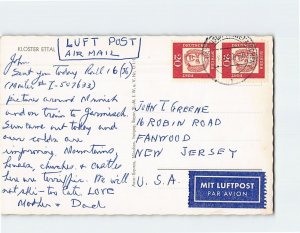 KLOSTER ETTAL
LUFT POST
AIR MAIL
DEUTSCHE
20
DEUTSCHE
20
POST
POST
John,
Sent you today Roll 16 (36)
(Mailer # I-507633)
pictures around Munich
and on train to Garmisch.
Sun came out today and
our colds are
improving. Mountains,
homes, churches & castles
here are terrific. We will
not ski - too late. LOVE
Mother + Dad
JOHN T. GREENE
16 ROBIN ROAD
FANWOOD
NEW JERSEY
U.S.A.
MIT LUFTPOST
PAR AVION